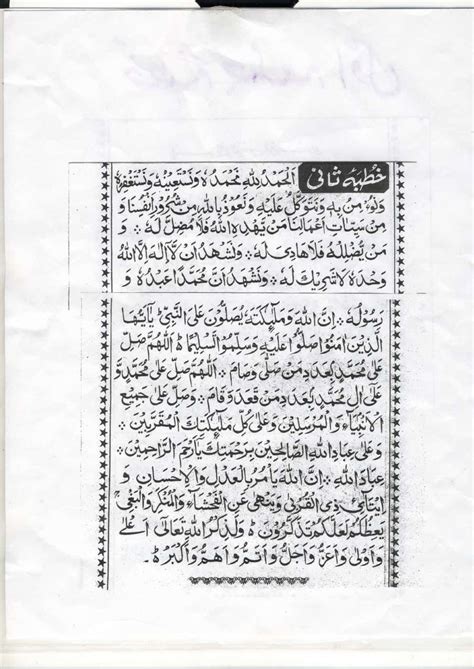 خطبہ ثانی اَلْحَمْدُ لِلّٰهِ نَحْمَدُهٗ وَنَسْتَعِيْنُهٗ وَنَسْتَغْفِرُهٗ
وَنُؤْمِنُ بِهٖ وَنَتَوَكَّلُ عَلَيْهِ وَنَعُوْذُ بِاللّٰهِ مِنْ شُرُوْرِ اَنْفُسِنَا وَ
مِنْ سَيِّئَاتِ اَعْمَالِنَا مَنْ يَّهْدِهِ اللّٰهُ فَلَا مُضِلَّ لَهٗ وَ
مَنْ يُّضْلِلْهُ فَلَا هَادِيَ لَهٗ وَنَشْهَدُ اَنْ لَّا اِلٰهَ اِلَّا اللّٰهُ
وَحْدَهٗ لَا شَرِيْكَ لَهٗ وَنَشْهَدُ اَنَّ مُحَمَّدًا عَبْدُهٗ وَ
رَسُوْلُهٗ اِنَّ اللّٰهَ وَمَلٰٓئِكَتَهٗ يُصَلُّوْنَ عَلَى النَّبِيِّ يٰٓاَيُّهَا
الَّذِيْنَ اٰمَنُوْا صَلُّوْا عَلَيْهِ وَسَلِّمُوْا تَسْلِيْمًا اَللّٰهُمَّ صَلِّ
عَلٰى مُحَمَّدٍ بِعَدَدِ مَنْ صَلّٰى وَصَامَ اَللّٰهُمَّ صَلِّ عَلٰى مُحَمَّدٍ وَّ
عَلٰى اٰلِ مُحَمَّدٍ بِعَدَدِ مَنْ قَعَدَ وَقَامَ وَصَلِّ عَلٰى جَمِيْعِ
الْاَنْبِيَاءِ وَالْمُرْسَلِيْنَ وَعَلٰى كُلِّ مَلٰٓئِكَتِكَ الْمُقَرَّبِيْنَ
وَعَلٰى عِبَادِ اللّٰهِ الصَّالِحِيْنَ بِرَحْمَتِكَ يَا اَرْحَمَ الرَّاحِمِيْنَ
عِبَادَ اللّٰهِ اِنَّ اللّٰهَ يَاْمُرُ بِالْعَدْلِ وَالْاِحْسَانِ وَ
اِيْتَآئِ ذِي الْقُرْبٰى وَيَنْهٰى عَنِ الْفَحْشَآءِ وَالْمُنْكَرِ وَالْبَغْيِ
يَعِظُكُمْ لَعَلَّكُمْ تَذَكَّرُوْنَ وَلَذِكْرُ اللّٰهِ تَعَالٰى اَعْلٰى
وَاَوْلٰى وَاَعَزُّ وَاَجَلُّ وَاَتَمُّ وَاَهَمُّ وَاَكْبَرُ